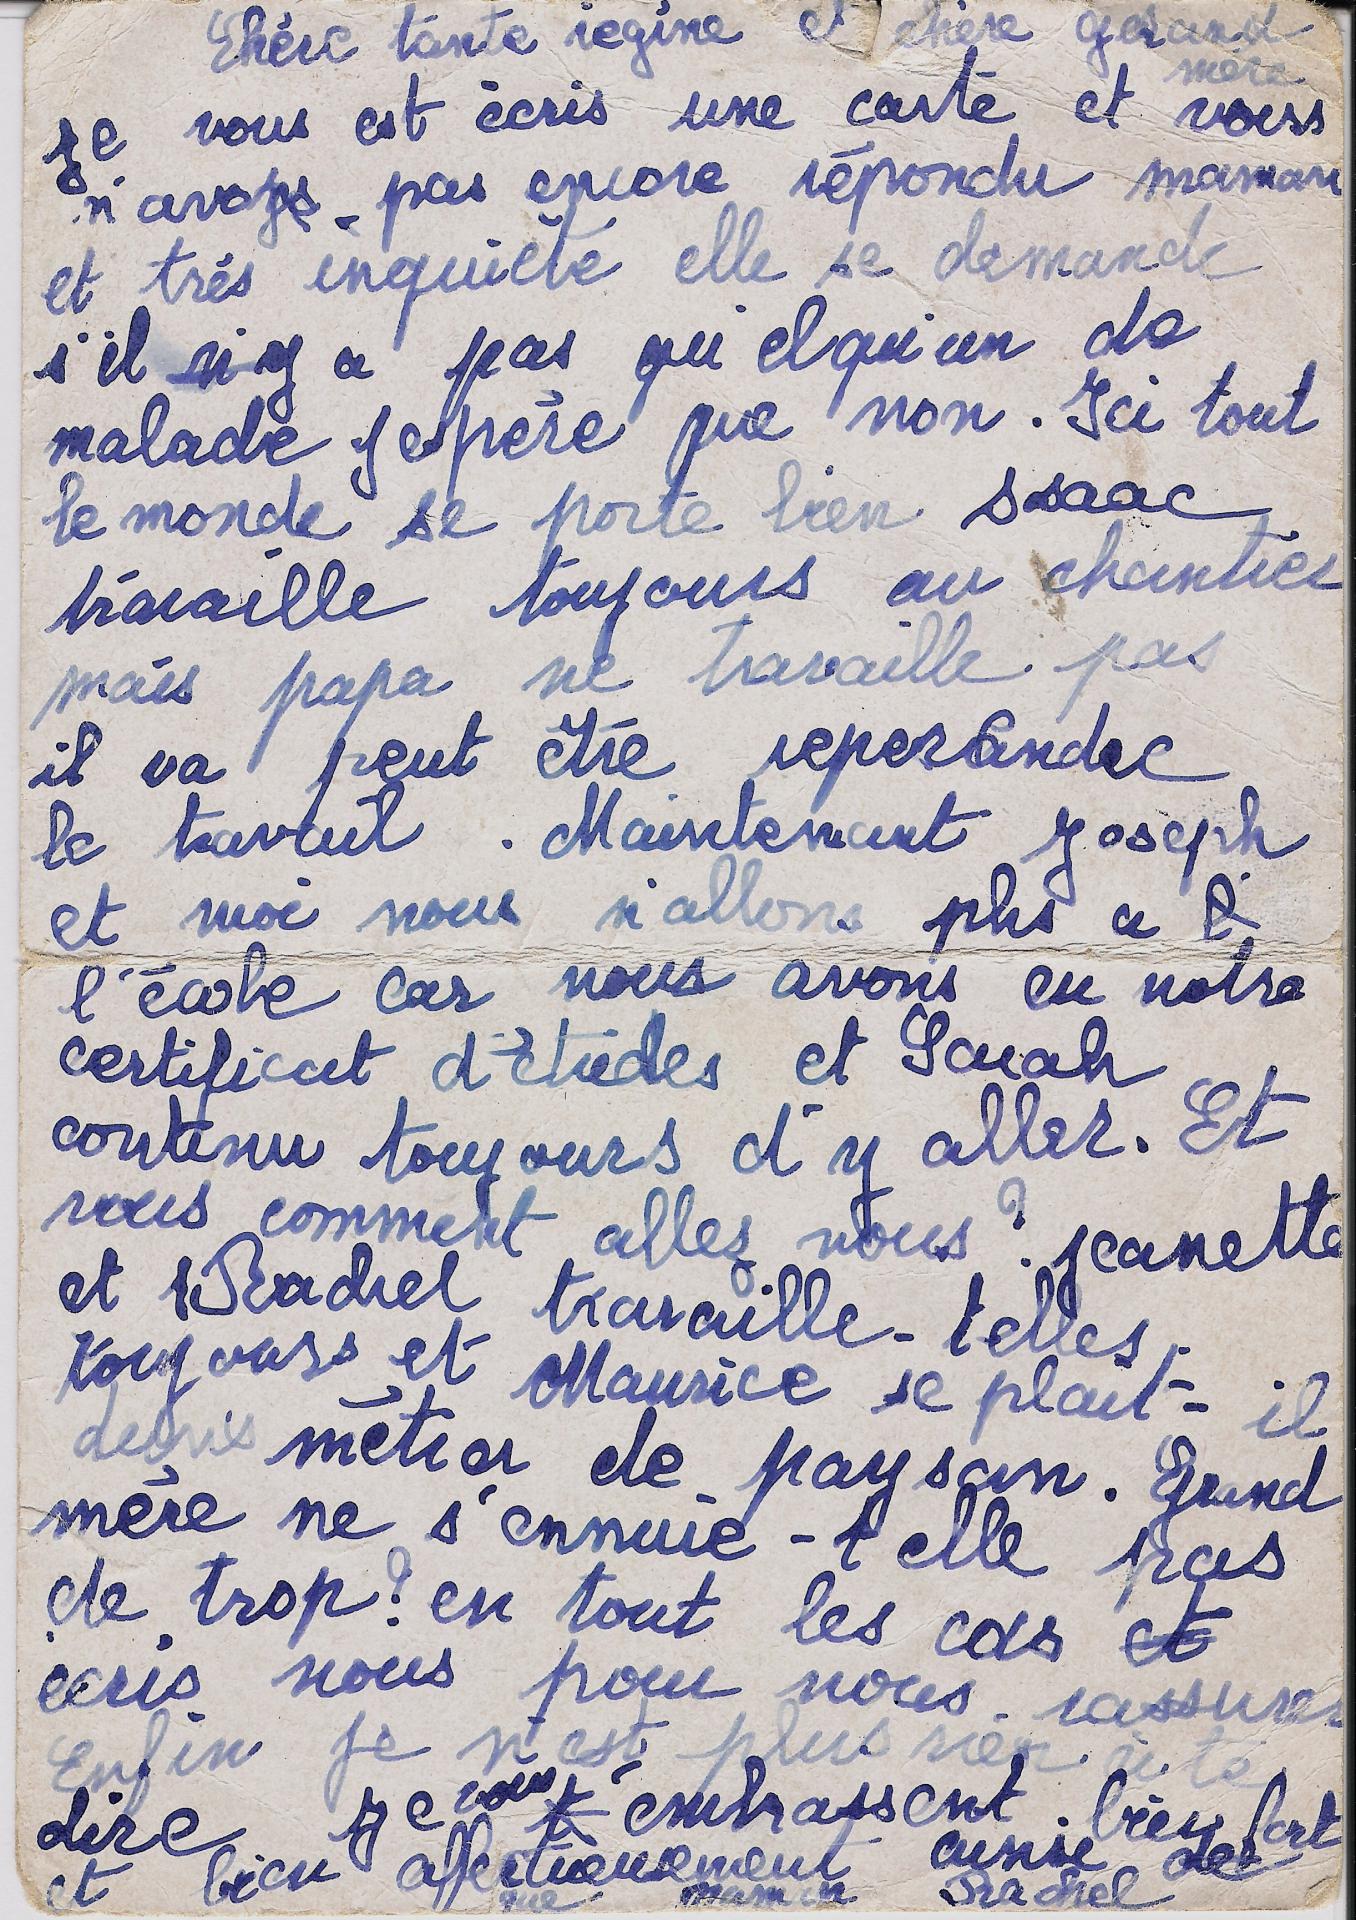 Chère tante regine et chère grand
mère
Je vous est écris une carte et vous
n'avais pas encore répondu maman
et très inquiète elle se demande
s'il n'y a pas quielqu'un de
malade j'espère que non. Ici tout
le monde se porte bien Isaac
travaille toujours au chantier
mais papa ne travaille pas
il va peut être reprendre
le travail. Maintenant Joseph
et moi nous n'allons plus a
l'école car nous avons eu notre
certificat d'études et Sarah
contenu toujours d'y aller. Et
vous comment allez vous? Jeanette
et Rachel travaille-telles
toujours et Maurice se plait-il
métier de paysan. Grand
mère ne s'ennuie-t elle pas
de trop? en tout les cas et
écris nous pour nous rassurer
Enfin je n'est plus rien à te
dire Je vous t'embrassent bien fort
et bien affectueusement ainsi
que maman Rachel